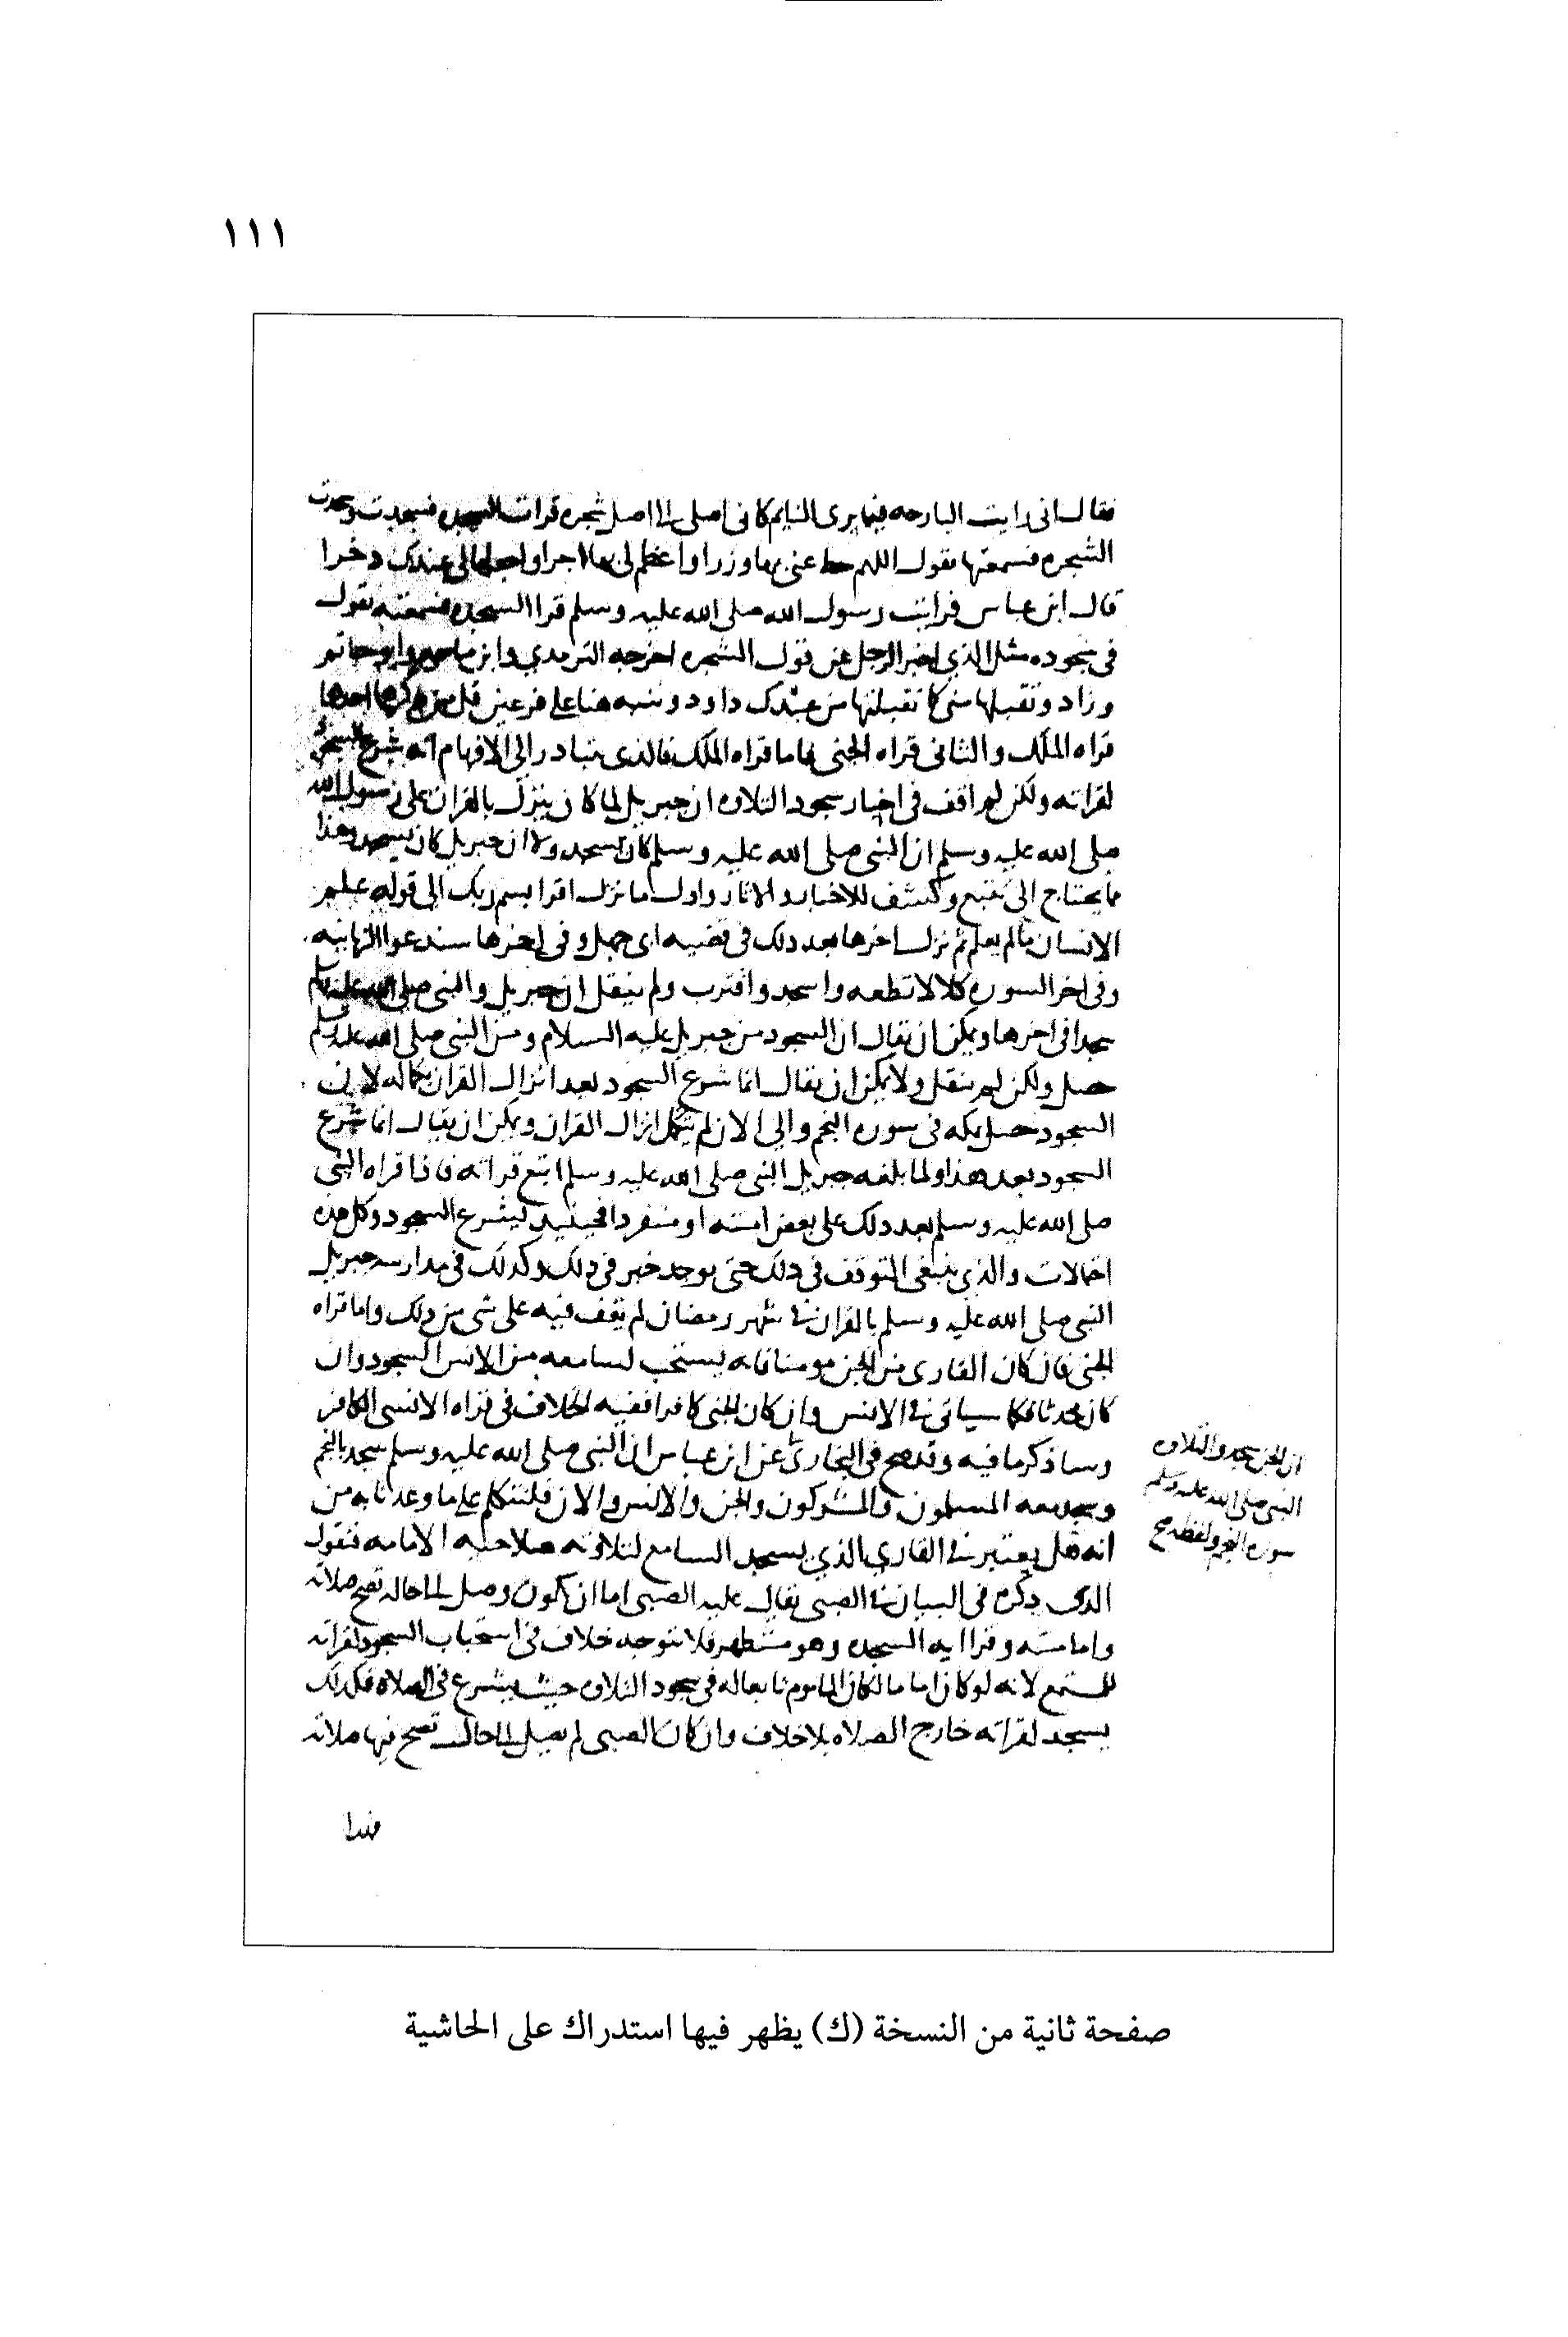 ١١١
فقال انى رايت البارحه فيما يرى النايم كانى اصلى الى اصل شجره قرات السجده فسجدت وسجدت
الشجره فسمعتها تقول اللهم حط عنى بها وزرا واعظم لى بها اجرا واجعلها لى عندك دخرا
قال ابن عباس فرايت رسول الله صلى الله عليه وسلم قرا السجده فسمعته يقول
فى سجوده مثل الذي اخبر الرجل عن قول الشجره اخرجه الترمدي وابن ماجه وابو حاتم
وزاد وتقبلها منى كما تقبلتها من عبدك داود وننبه هنا على فرعين قل من ذكرها احدها
قراه الملك والثانى قراه الجنى فاما قراه الملك فالذى يتبادر الى الافهام انه شرع السجود
لقراته ولكن لم اقف فى اخبار سجود التلاوه ان جبريل لما كان ينزل بالقران على رسول الله
صلى الله عليه وسلم ان النبى صلى الله عليه وسلم كان يسجد ولا ان جبريل كان يسجد وهذا
ما يحتاج الى تتبع وكشف للاخبار والاثار واول ما نزل اقرا بسم ربك الى قوله علم
الانسان مالم يعلم ثم نزل اخرها بعد دلك فى قضيه ابى جهل وفى اخرها سندعوا الزبانيه
وفى اخر السوره كلا لا تطعه واسجد واقترب ولم ينقل ان جبريل والنبى صلى الله عليه وسلم
سجدا فى اخرها ويمكن ان يقال ان السجود من جبريل عليه السلام ومن النبى صلى الله عليه وسلم
حصل ولكن لم ينقل ولا يمكن ان يقال انما شرع السجود بعد انزال القران بكماله لان
السجود حصل بمكه فى سوره النجم والى الان لم يكمل انزال القران ويمكن ان يقال انما شرع
السجود بعد هذا ولما بلغه جبريل النبى صلى الله عليه وسلم اتبع قراته فاذا قراه النبى
صلى الله عليه وسلم بعد دلك على بعض امته او منفردا فحينيد يشرع السجود وكل هذه
احتمالات والذي ينبغى التوقف فى دلك حتى يوجد خبر فى دلك وكدلك فى مدارسه جبريل
النبى صلى الله عليه وسلم بالقران فى شهر رمضان لم نقف فيه على شى من دلك واما قراه
الجنى فان كان القارى من الجن مومنا فانه يستحب لسامعه من الانس السجود وان
كان محدثا فكما سياتى فى الانس وان كان الجنى كافرا ففيه الخلاف فى قراه الانسى الكافر
وساذكر ما فيه وقد صح فى البخارى عن ابن عباس ان النبى صلى الله عليه وسلم سجد بالنجم
وسجد معه المسلمون والمشركون والجن والانس والان فلنتكلم على ما وعدنا به من
انه هل يعتبر فى القاري الذي يسجد السامع لتلاوته صلاحيه الامامه فنقول
الذى ذكره فى البيان فى الصبى يقال عليه الصبى اما ان يكون وصل الى حاله تصح صلاته
وامامته وقرا ايه السجده وهو متطهر فلا يتوجه خلاف فى استحباب السجود لقراته
للمستمع لانه لو كان اماما لكان الماموم تابعا له فى سجود التلاوه حيث يشرع فى الصلاه فكدلك
يسجد لقراته خارج الصلاه بلا خلاف وان كان الصبى لم يصل الى حال تصح فيها صلاته
ان الجن سجدوا لتلاوه
النبى صلى الله عليه وسلم
سوره النجم ولفظه صح
فهذا
صفحة ثانية من النسخة (ك) يظهر فيها استدراك على الحاشية